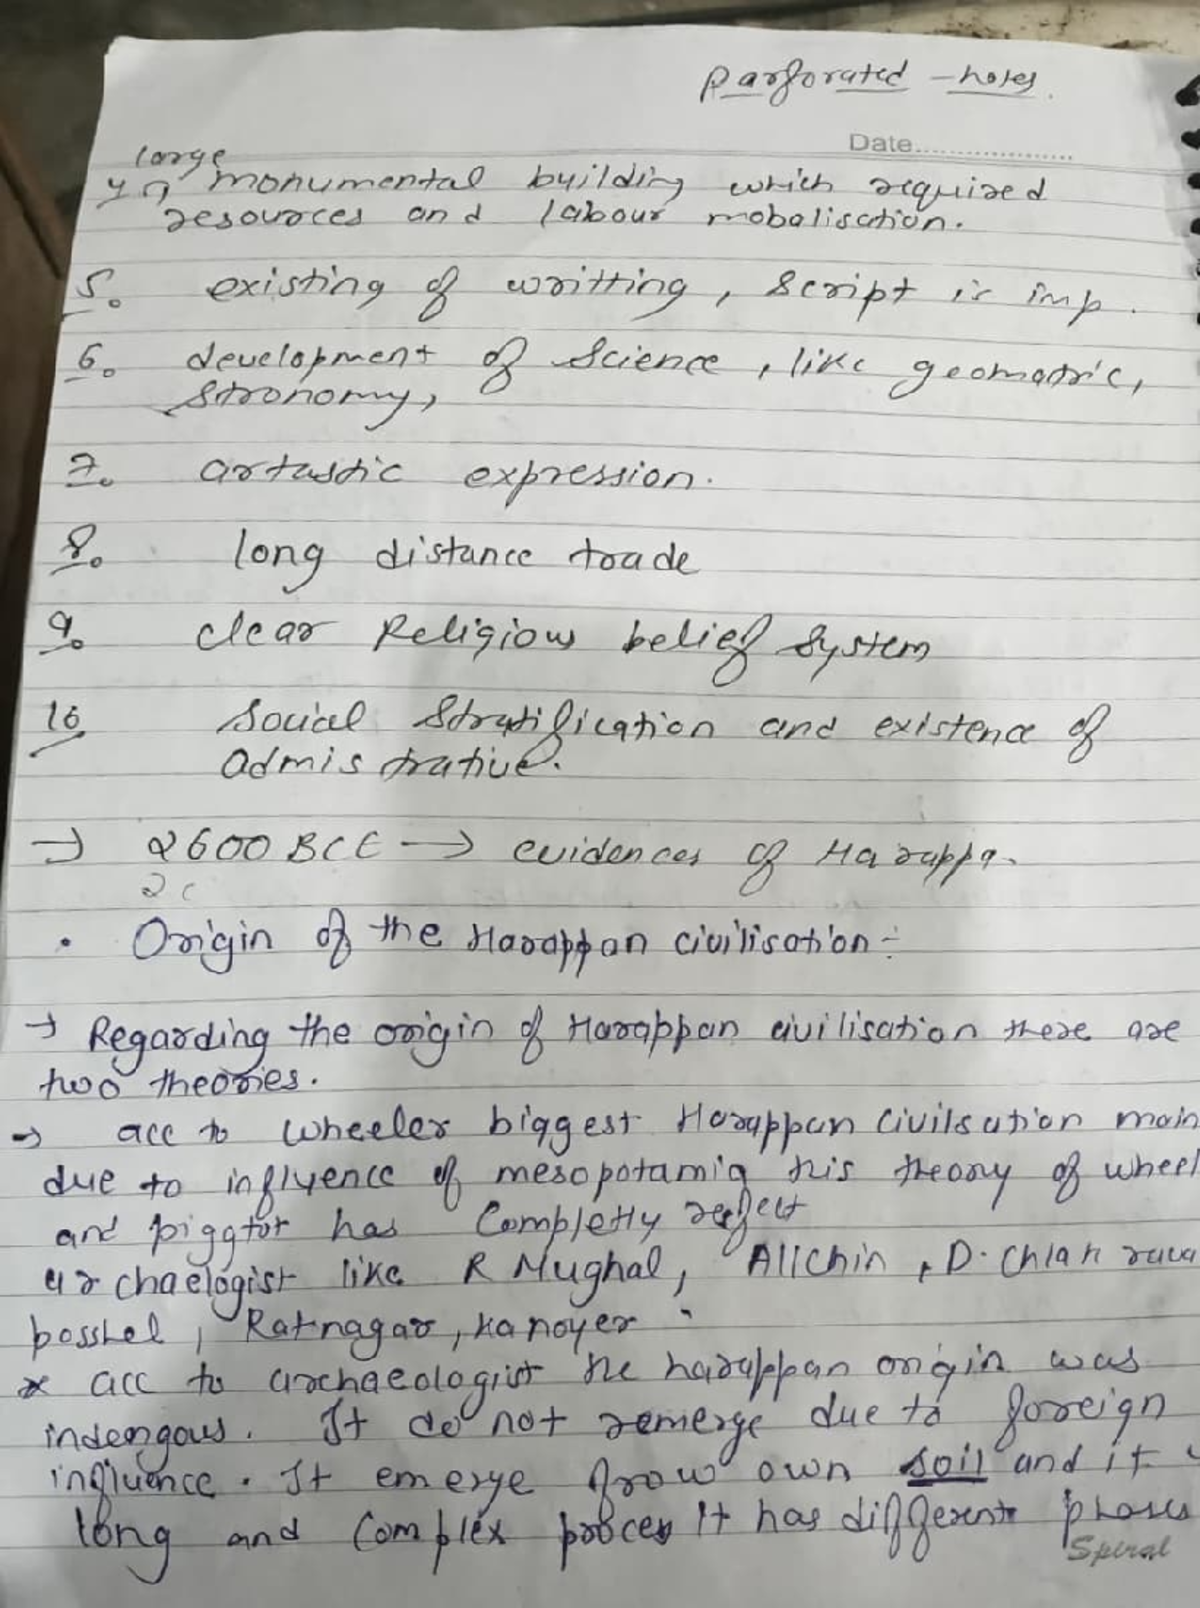 parforated - notes.
Date
large
4. monumental building which required
resources and labour mobalisation.
5. existing of writting, script is imp.
6. development of science, like geomatric,
stronomy,
7. artastic expression.
8. long distance trade
9. clear Religious belief system
10 Social Stratification and existence of
admistrative.
→ 2600 BCE → evidences of Harappa.
• Origin of the Harappan civilisation:-
→ Regarding the origin of Harappan civilisation there are
two theories.
→ acc to wheeler biggest Harappan Civilsation main
due to influence of mesopotamia this theory of wheel
and piggtot has Completly reject
archaelogist like R Mughal, Allchin, D. Chlak rava
posshel, Ratnagar, Kanoyer
* acc to archaeologist the harappan origin was
indengous. It do not remerge due to foreign
influence. It emerge from own soil and it
long and Complex proces It has different phases
Spiral